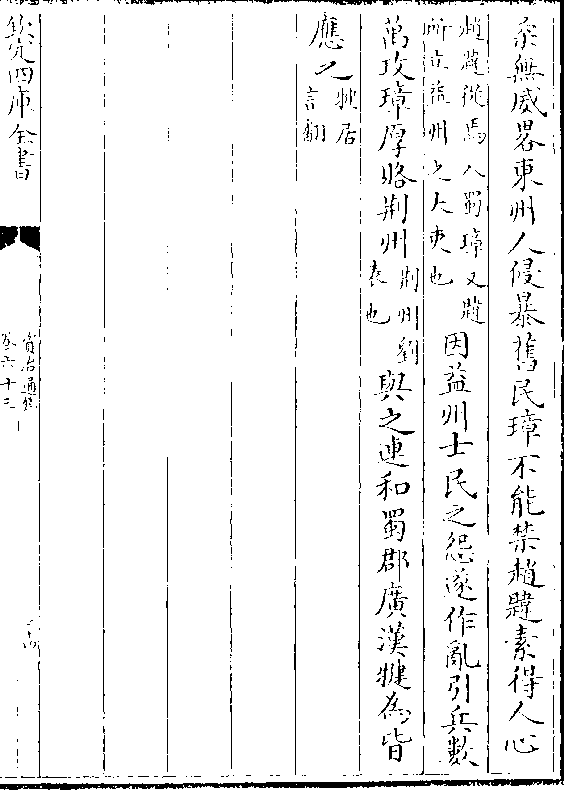 柔無威畧東州人侵暴舊民璋不能禁趙韙素得人心
趙韙從焉入蜀璋又韙
所立益州之大吏也
因益州士民之怨遂作亂引兵數
萬攻璋厚賂荆州
荆州劉
表也
與之連和蜀郡廣漢犍為皆
應之
犍居
言翻
欽定四庫全書
資治通鑑
卷六十三